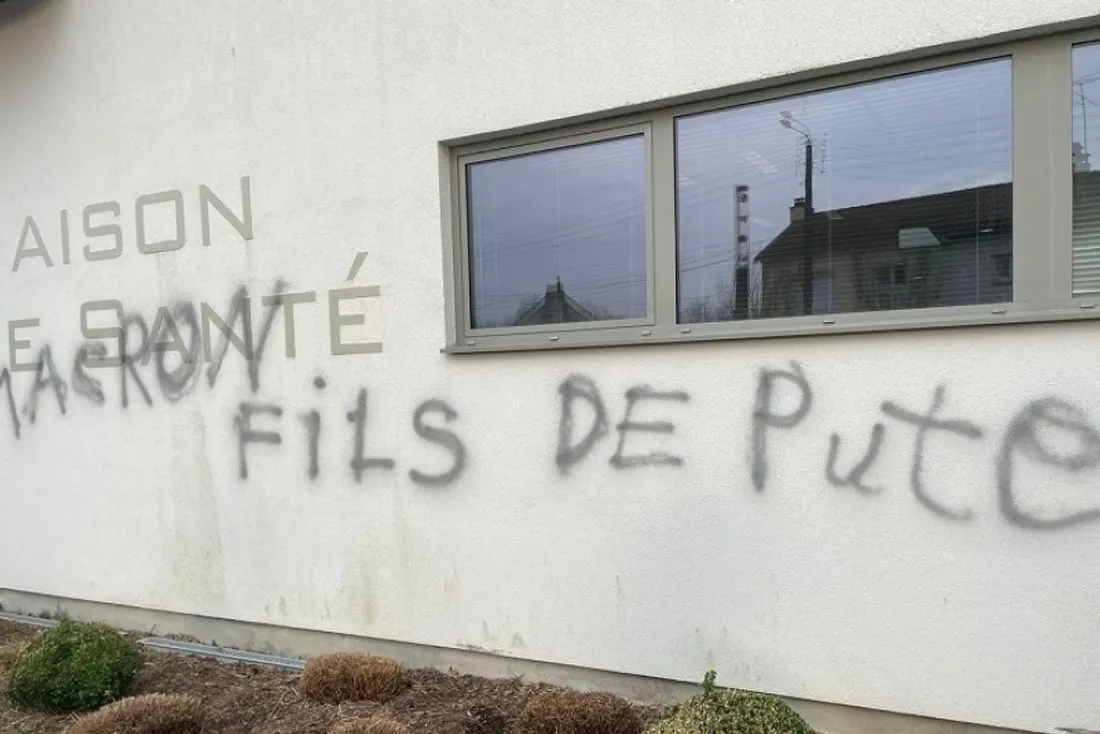 AISON
E SANTÉ
MACRON
FiLS DE PUtE